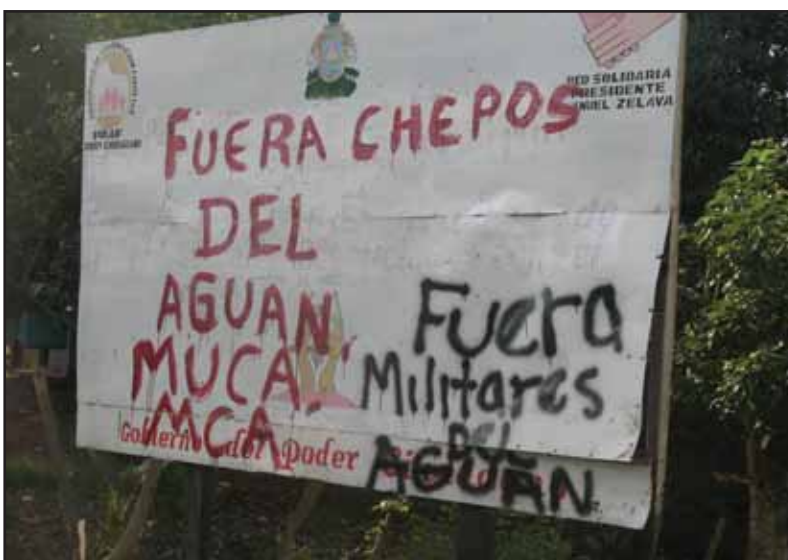 RED SOLIDARIA
PRESIDENTE
ZELAYA
FUERA CHEPOS
DEL
AGUAN
MUCA
MCA
Fuera
Militares
DEL
AGUAN
Gobierno del Poder